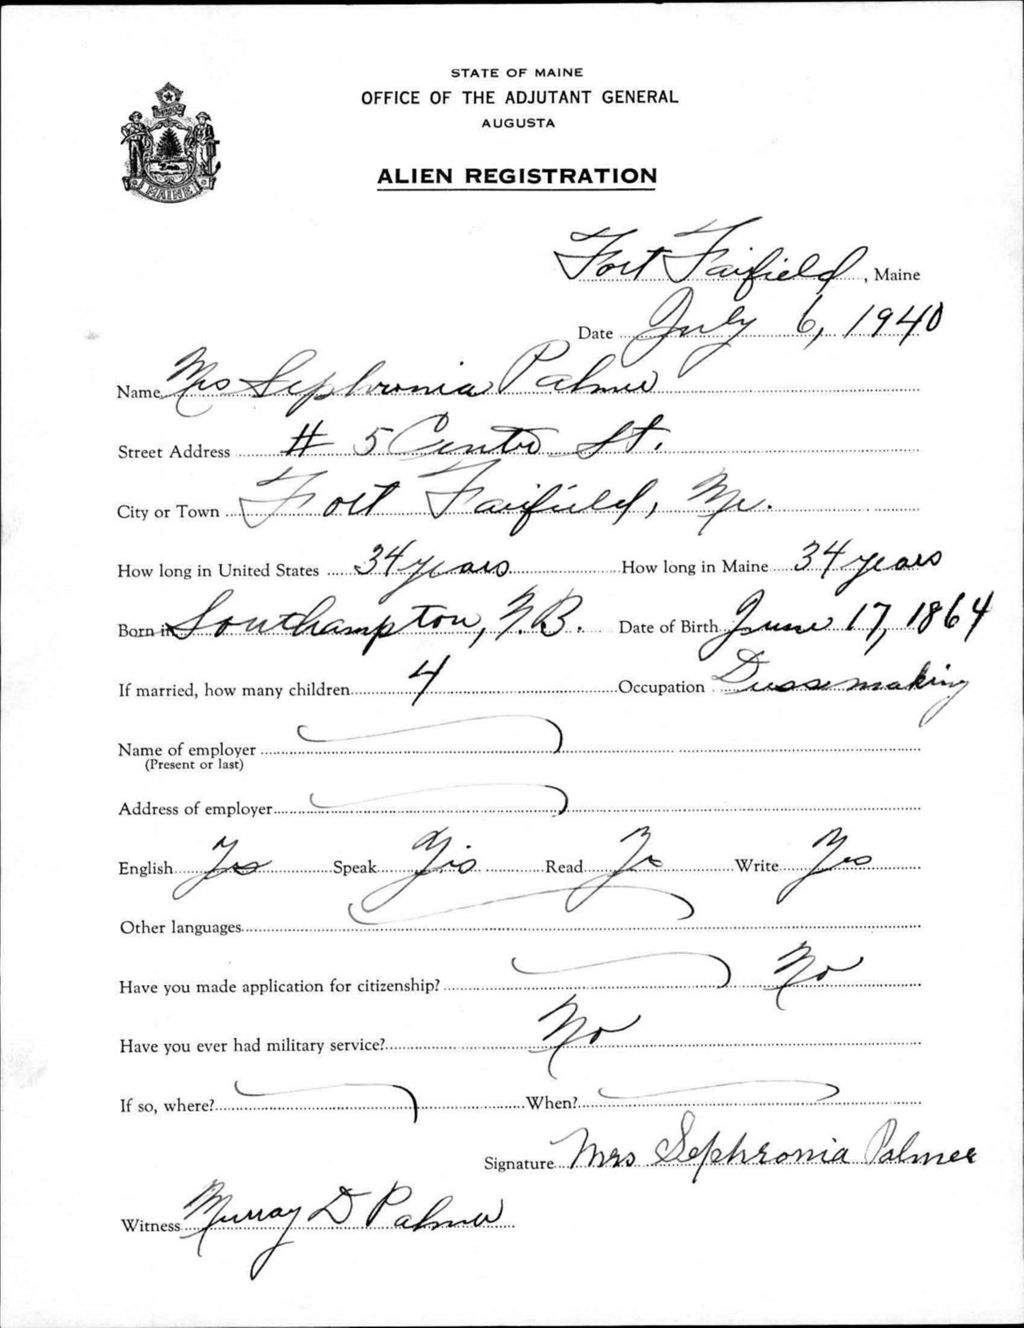 STATE OF MAINE
OFFICE OF THE ADJUTANT GENERAL
AUGUSTA
ALIEN REGISTRATION
MAINE
Fort Fairfield, Maine
Date July 6, 1940
Name Mrs Sephronia Palmer
Street Address # 5 Centre St.
City or Town Fort Fairfield, Me.
How long in United States 34 years How long in Maine 34 years
Born in Southampton, N.B. Date of Birth June 17, 1864
If married, how many children 4 Occupation Dressmaking
Name of employer
(Present or last)
Address of employer
English Yes Speak Yes Read Yes Write Yes
Other languages
Have you made application for citizenship? No
Have you ever had military service? No
If so, where? When?
Signature Mrs Sephronia Palmer
Witness Murray D Palmer